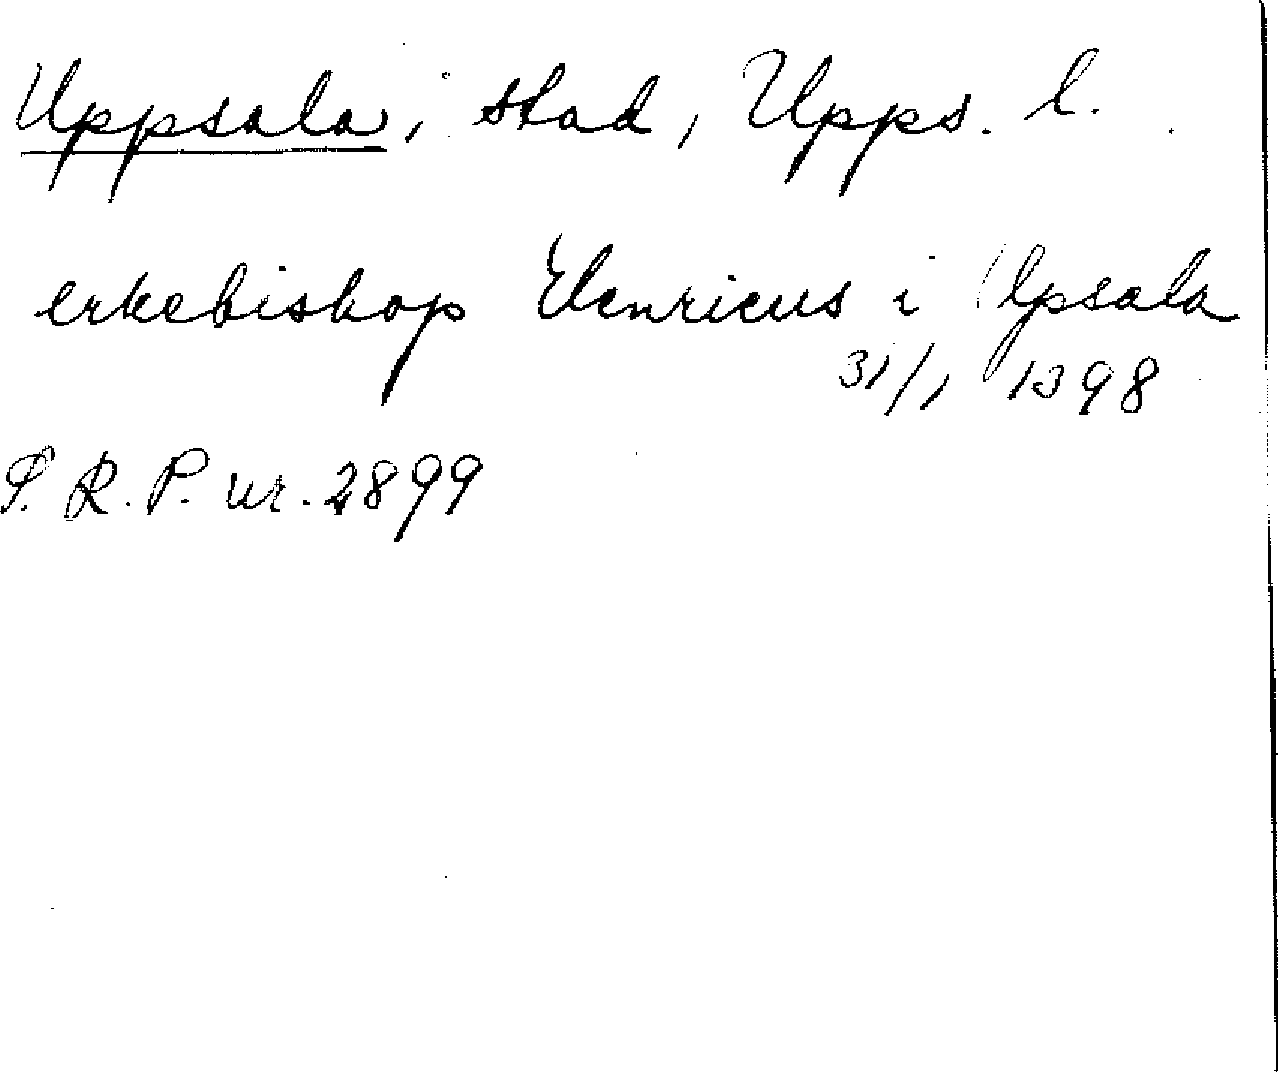 Uppsala, stad, Upps. l.
erkebiskop Henricus i Upsala
31/1 1398
S. R. P. nr. 2899